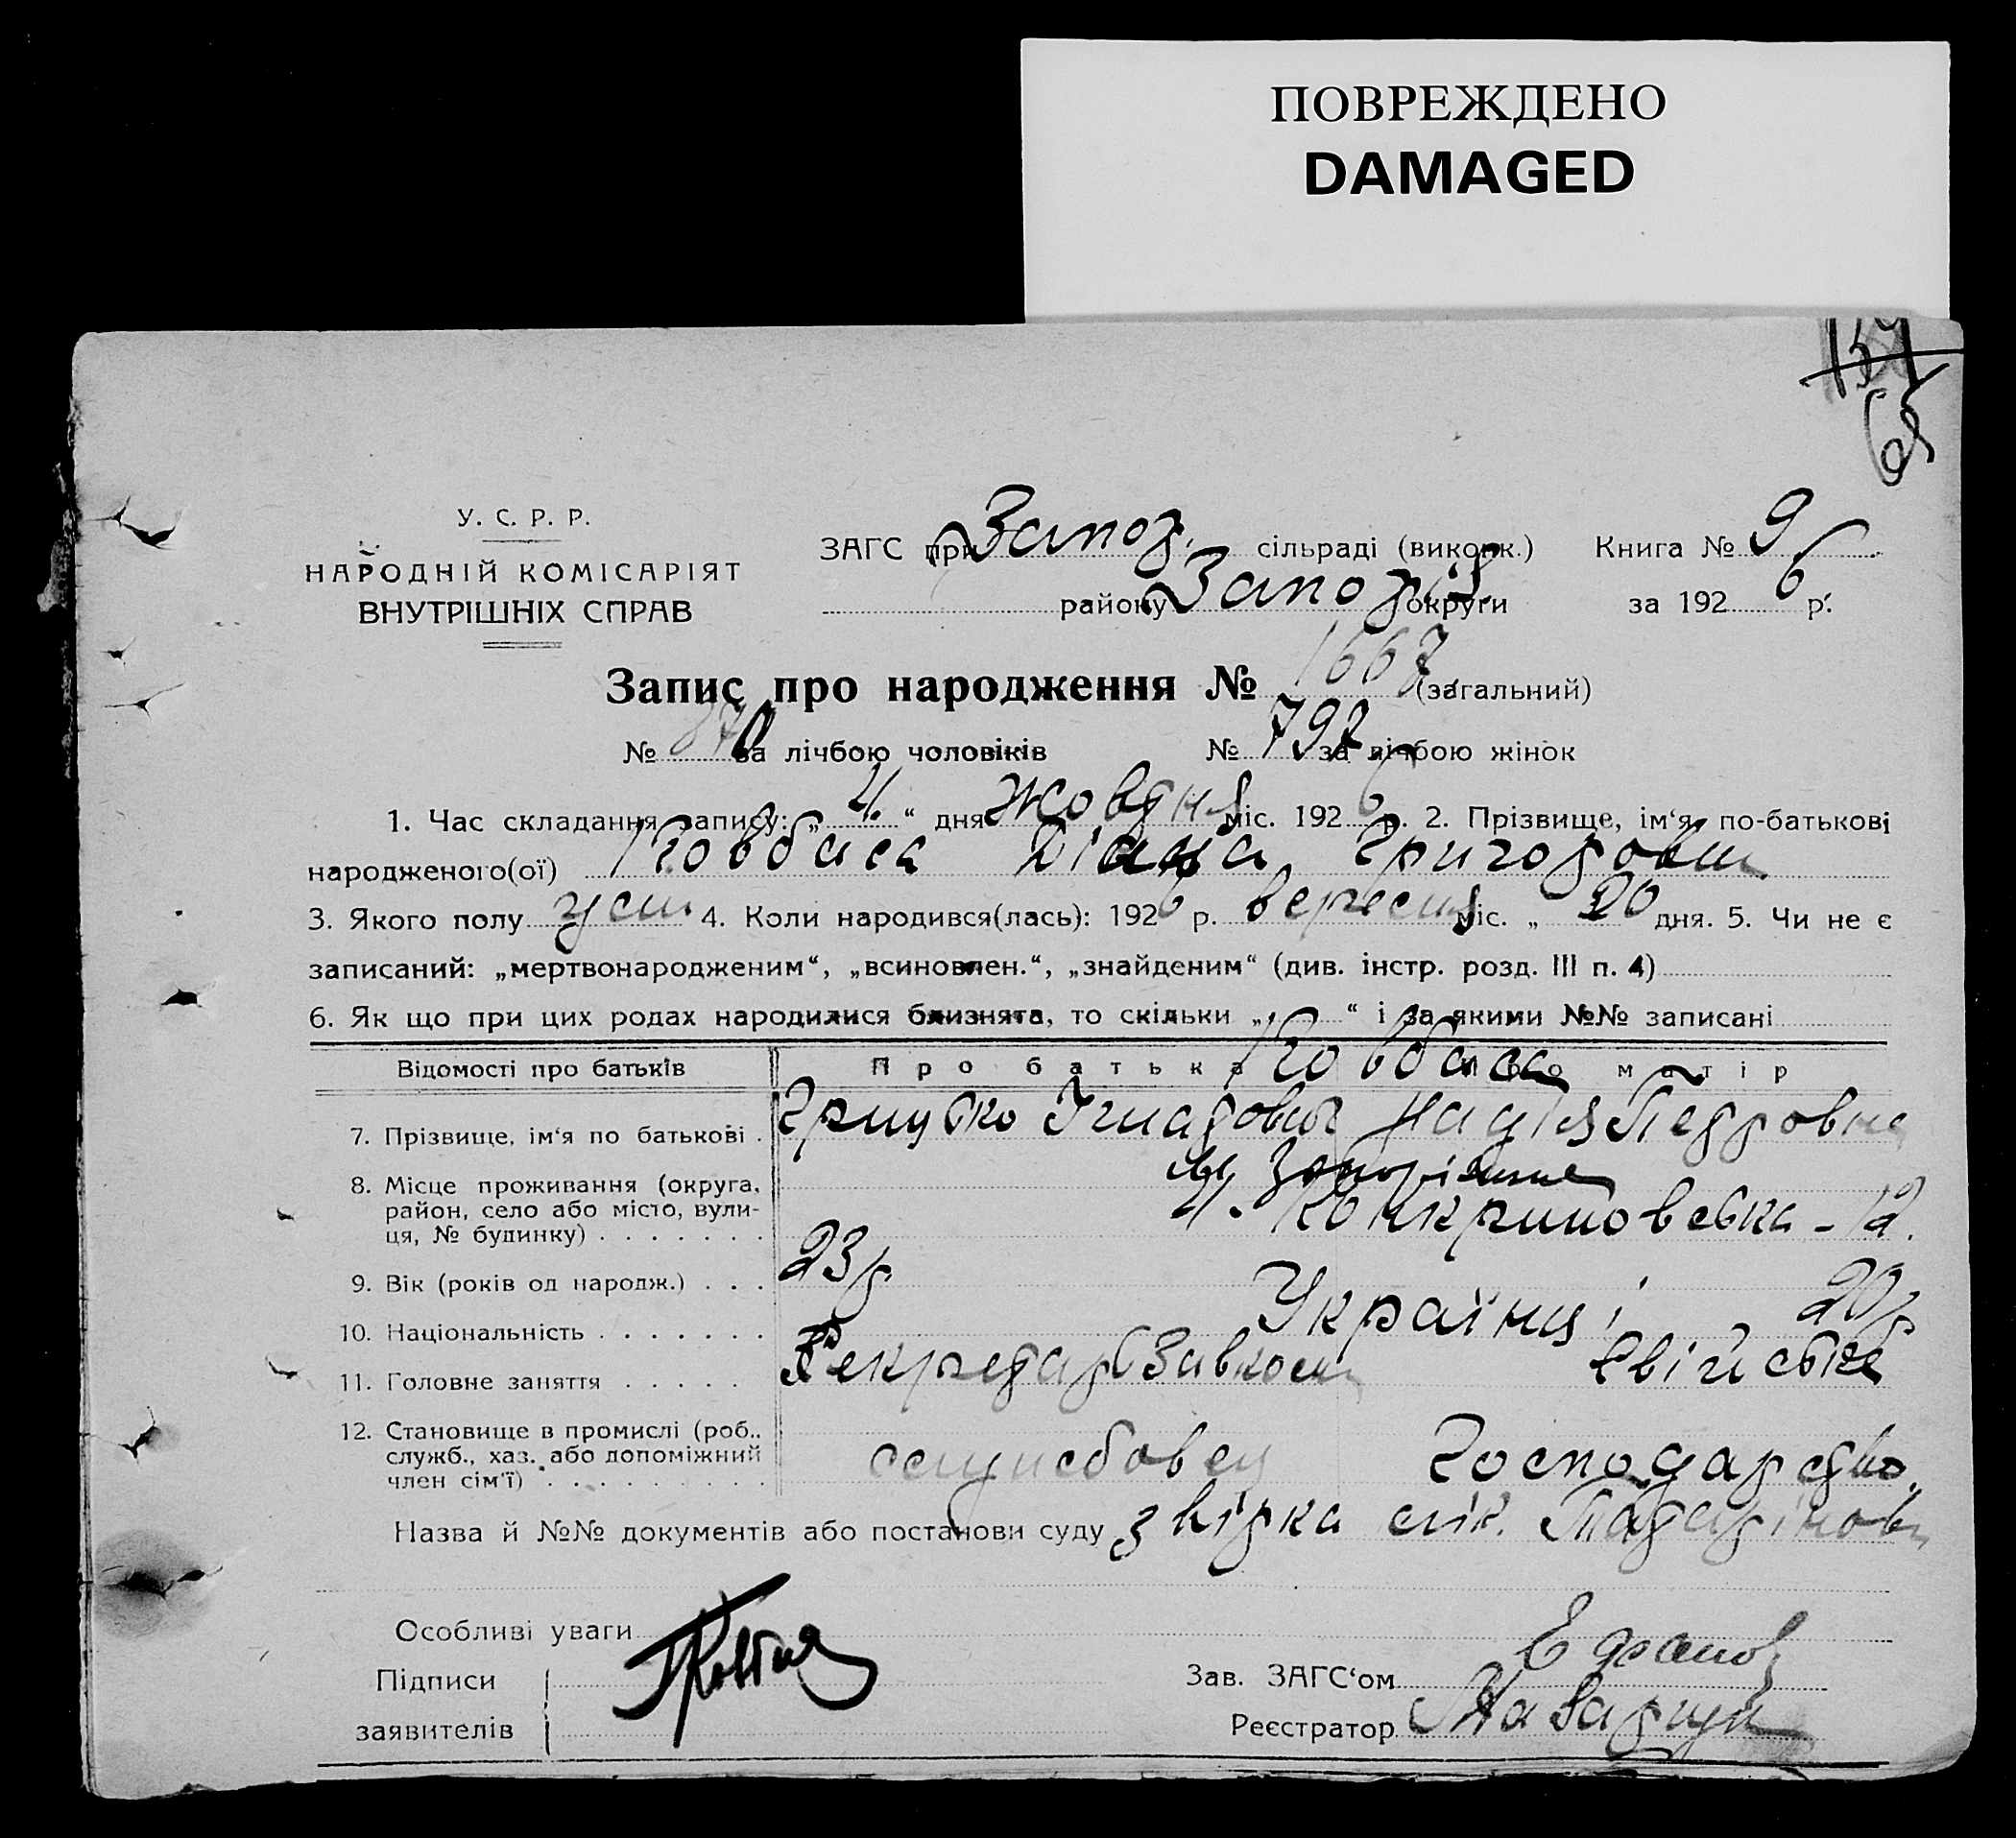 ПОВРЕЖДЕНО
DAMAGED
У. С. Р. Р.
НАРОДНІЙ КОМІСАРІЯТ
ВНУТРІШНІХ СПРАВ
ЗАГС при Запор. сільраді (виконк.) Книга № 9
району Запоріз округи за 1926 р.
Запис про народження № 1667 (загальний)
№ 870 за лічбою чоловіків № 797 за лічбою жінок
1. Час складання запису: „4“ дня жовтня міс. 1926 р. 2. Прізвище, ім‘я, по-батькові
народженого(ої) Ковбаса Діана Григоровн
3. Якого полу жін 4. Коли народився(лась): 1926 р. вересня міс. „ 20 дня. 5. Чи не є
записаний: „мертвонародженим“, „всиновлен.“, „знайденим“ (див. інстр. розд. III п. 4)
6. Як що при цих родах народилися близнята, то скільки „ “ і за якими №№ записані
Відомості про батьків Про батька Про матір
Ковбаса
7. Прізвище, ім‘я по батькові Грицько Гнатович Надія Петровна
8. Місце проживання (округа, район, село або місто, вулиця, № будинку) м. Запоріжжя
12.
9. Вік (років од народж.) 23 р 20 р
10. Національність Українці
11. Головне заняття Секретарь Завкому хвійське
12. Становище в промислі (роб., служб., хаз. або допоміжний член сім‘ї) службовец господарство
Назва й №№ документів або постанови суду звірка лік.
Особливі уваги
Підписи
заявителів
Зав. ЗАГС‘ом
Реєстратор